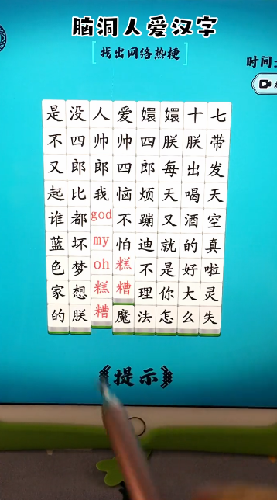 脑洞人爱汉字
[找出网络热梗]
时间
是没人爱嬛嬛十七
不四帅帅四朕朕带
又郎郎四郎每出发
起比我恼烦天喝天
谁都god不蹦又酒空
蓝坏my怕迪就的真
色梦oh糕不是好啦
家想糕糟理你大灵
的朕糟魔法怎么失
《提示》